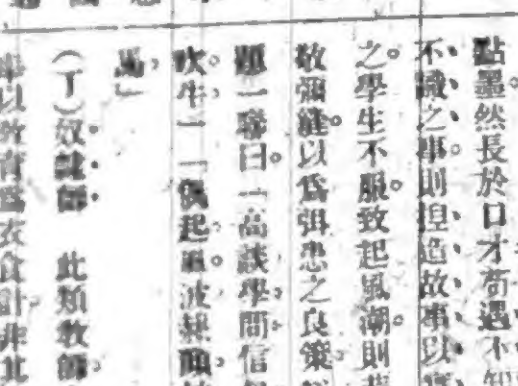 點墨然長於口才苟遇不知
不識之事則揑造故事以
之學生不服致起風潮則
敬彌縫以爲弭患之良策
題一聯曰「高談學問信
吹牛」「偶起風波拍
馬」
(丁)奴隸師 此類教師
以教育爲衣食計非其